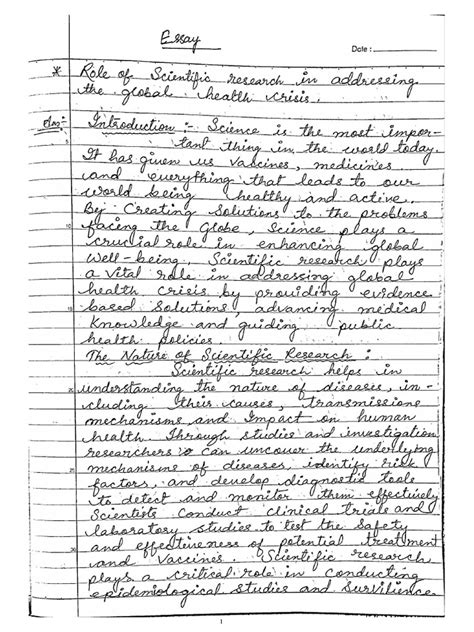 Essay
Date :
* Role of Scientific research in addressing
the global health crisis.
Ans:- Introduction :- Science is the most impor-
tant thing in the world today.
It has given us Vaccines, medicines
and everything that leads to our
world being healthy and active.
By Creating Solutions to the problems
facing the Globe, Science plays a
crucial role in enhancing global
well-being. Scientific research plays
a vital role in addressing global
health Crisis by providing evidence
based Solutions, advancing medical
Knowledge and guiding public
health policies.
The Nature of Scientific Research :
Scientific research helps in
understanding the nature of diseases, in-
cluding their causes, transmissione
mechanisms and Impact on human
health. Through studies and investigation
researchers can uncover the underlying
mechanisms of diseases, identify risk
factors, and develop diagnostic tools
to detect and monitor them effectively
Scientists Conduct clinical trials and
laboratory studies to test the Safety
and effectiveness of potential treatment
and Vaccines. Scientific research
plays a critical role in conducting
epidemiological studies and Survilience.
1